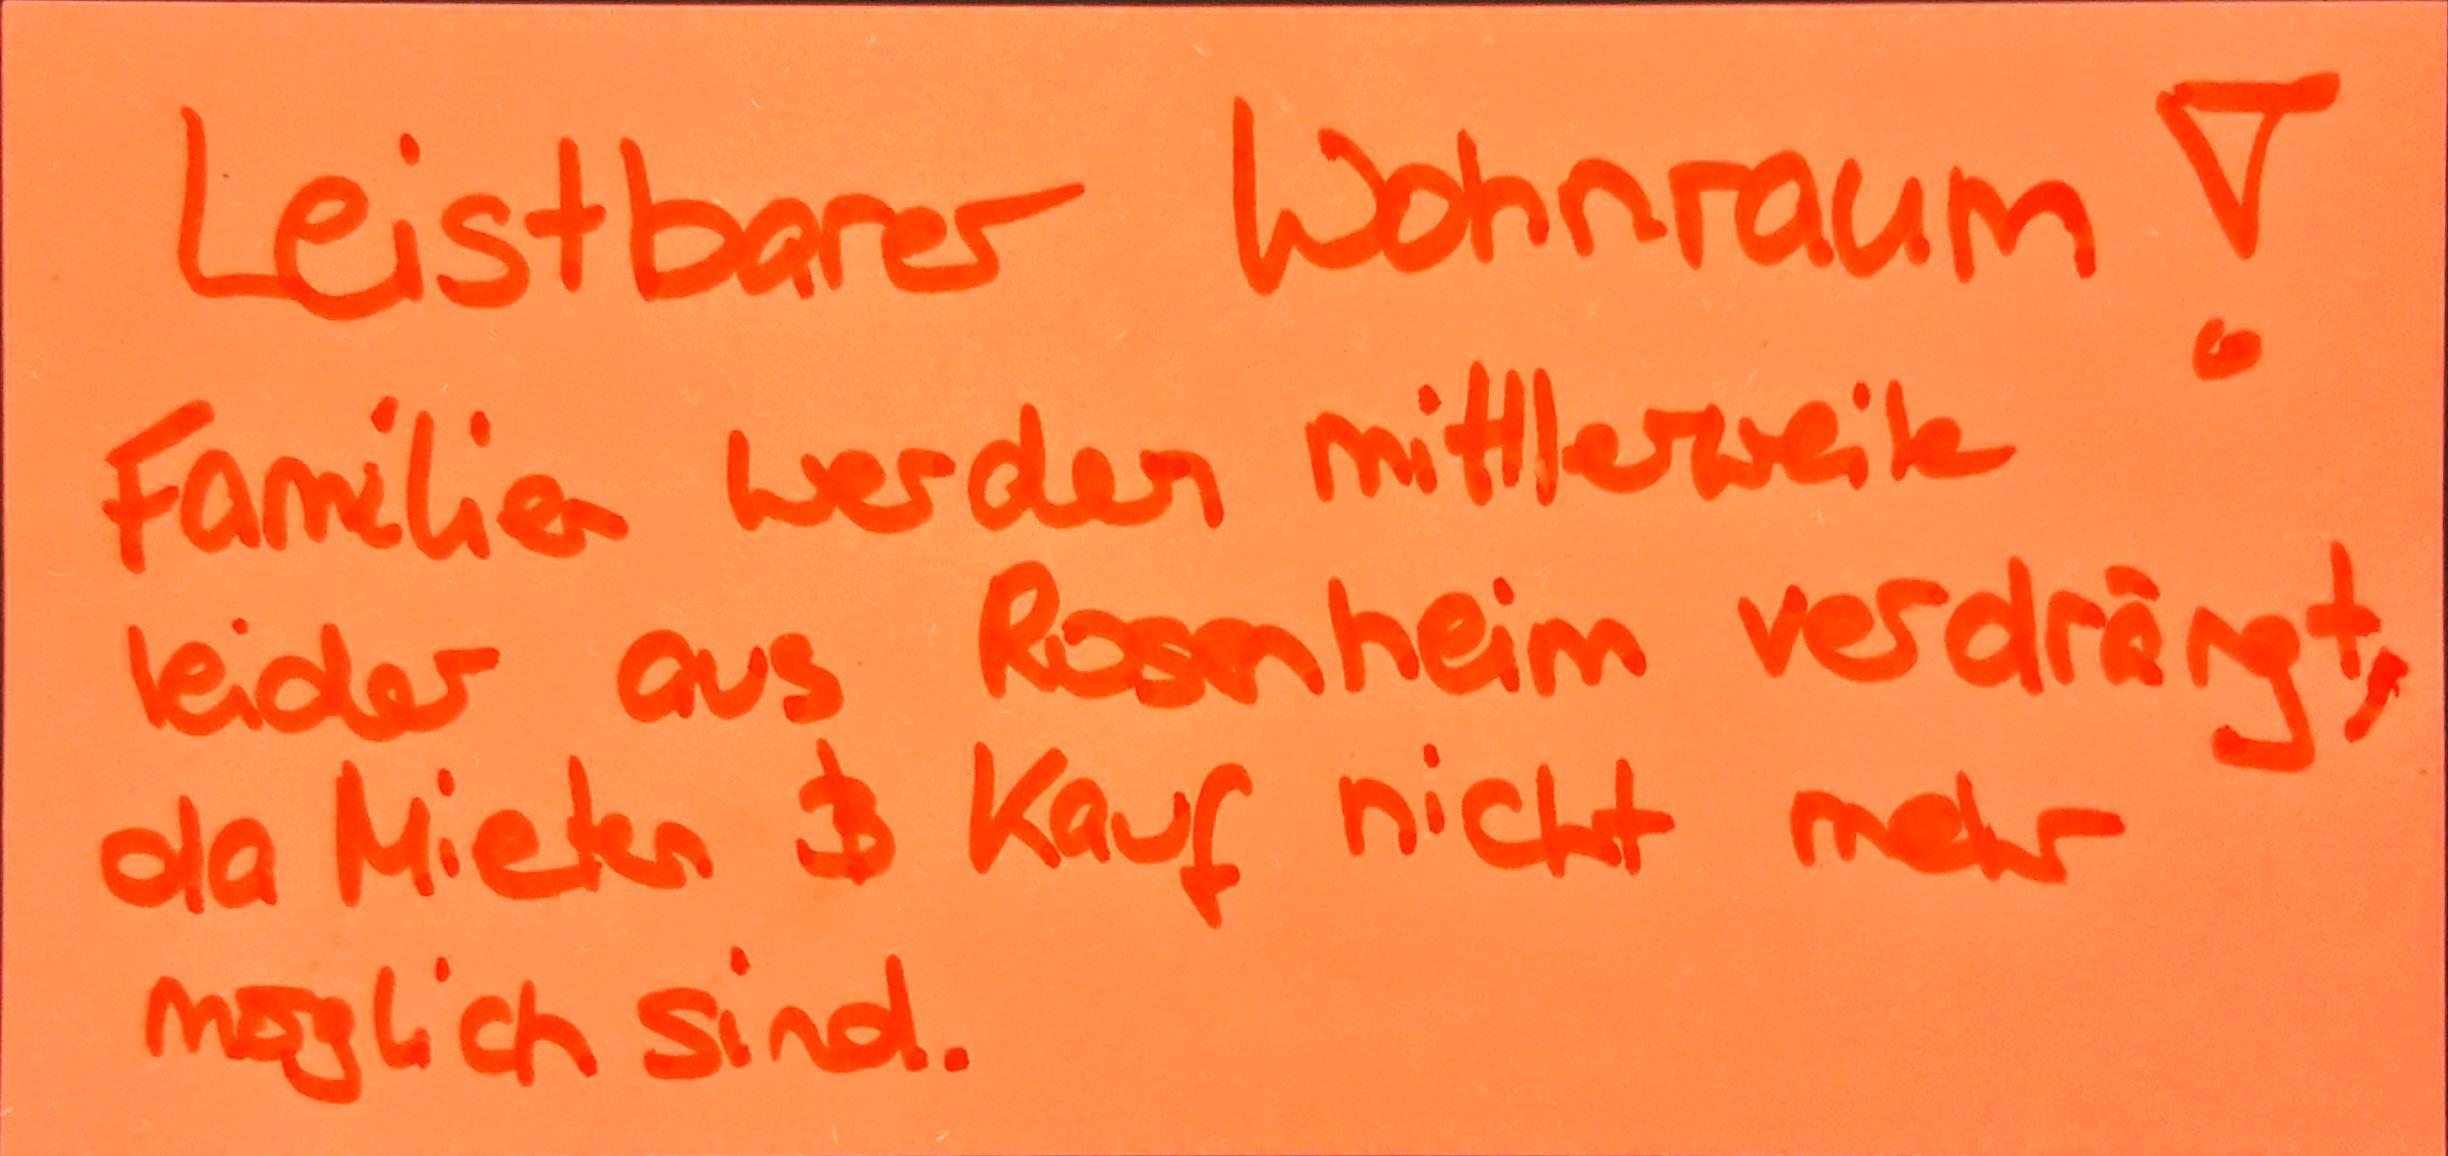 Leistbarer Wohnraum!
Familien werden mittlerweile
leider aus Rosenheim verdrängt,
da Mieten & Kauf nicht mehr
möglich sind.